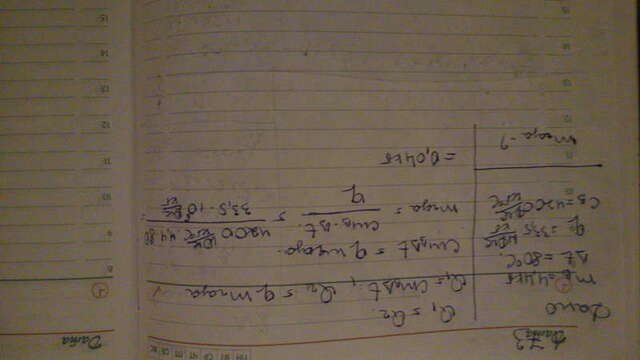 Дано
mв = 4,4 кг
Δt = 80°C
q = 33,5 Дж/кг
Cв = 4200 Дж/кг°C
mгаза - ?
Q₁ = Q₂.
Q₁ = cmвΔt, Q₂ = q mгаза
cmвΔt = q mгаза.
mгаза = cmвΔt / q = 4200 Дж/кг°C · 4,4 · 80 / 33,5·10⁶ Дж/кг =
= 0,04 кг